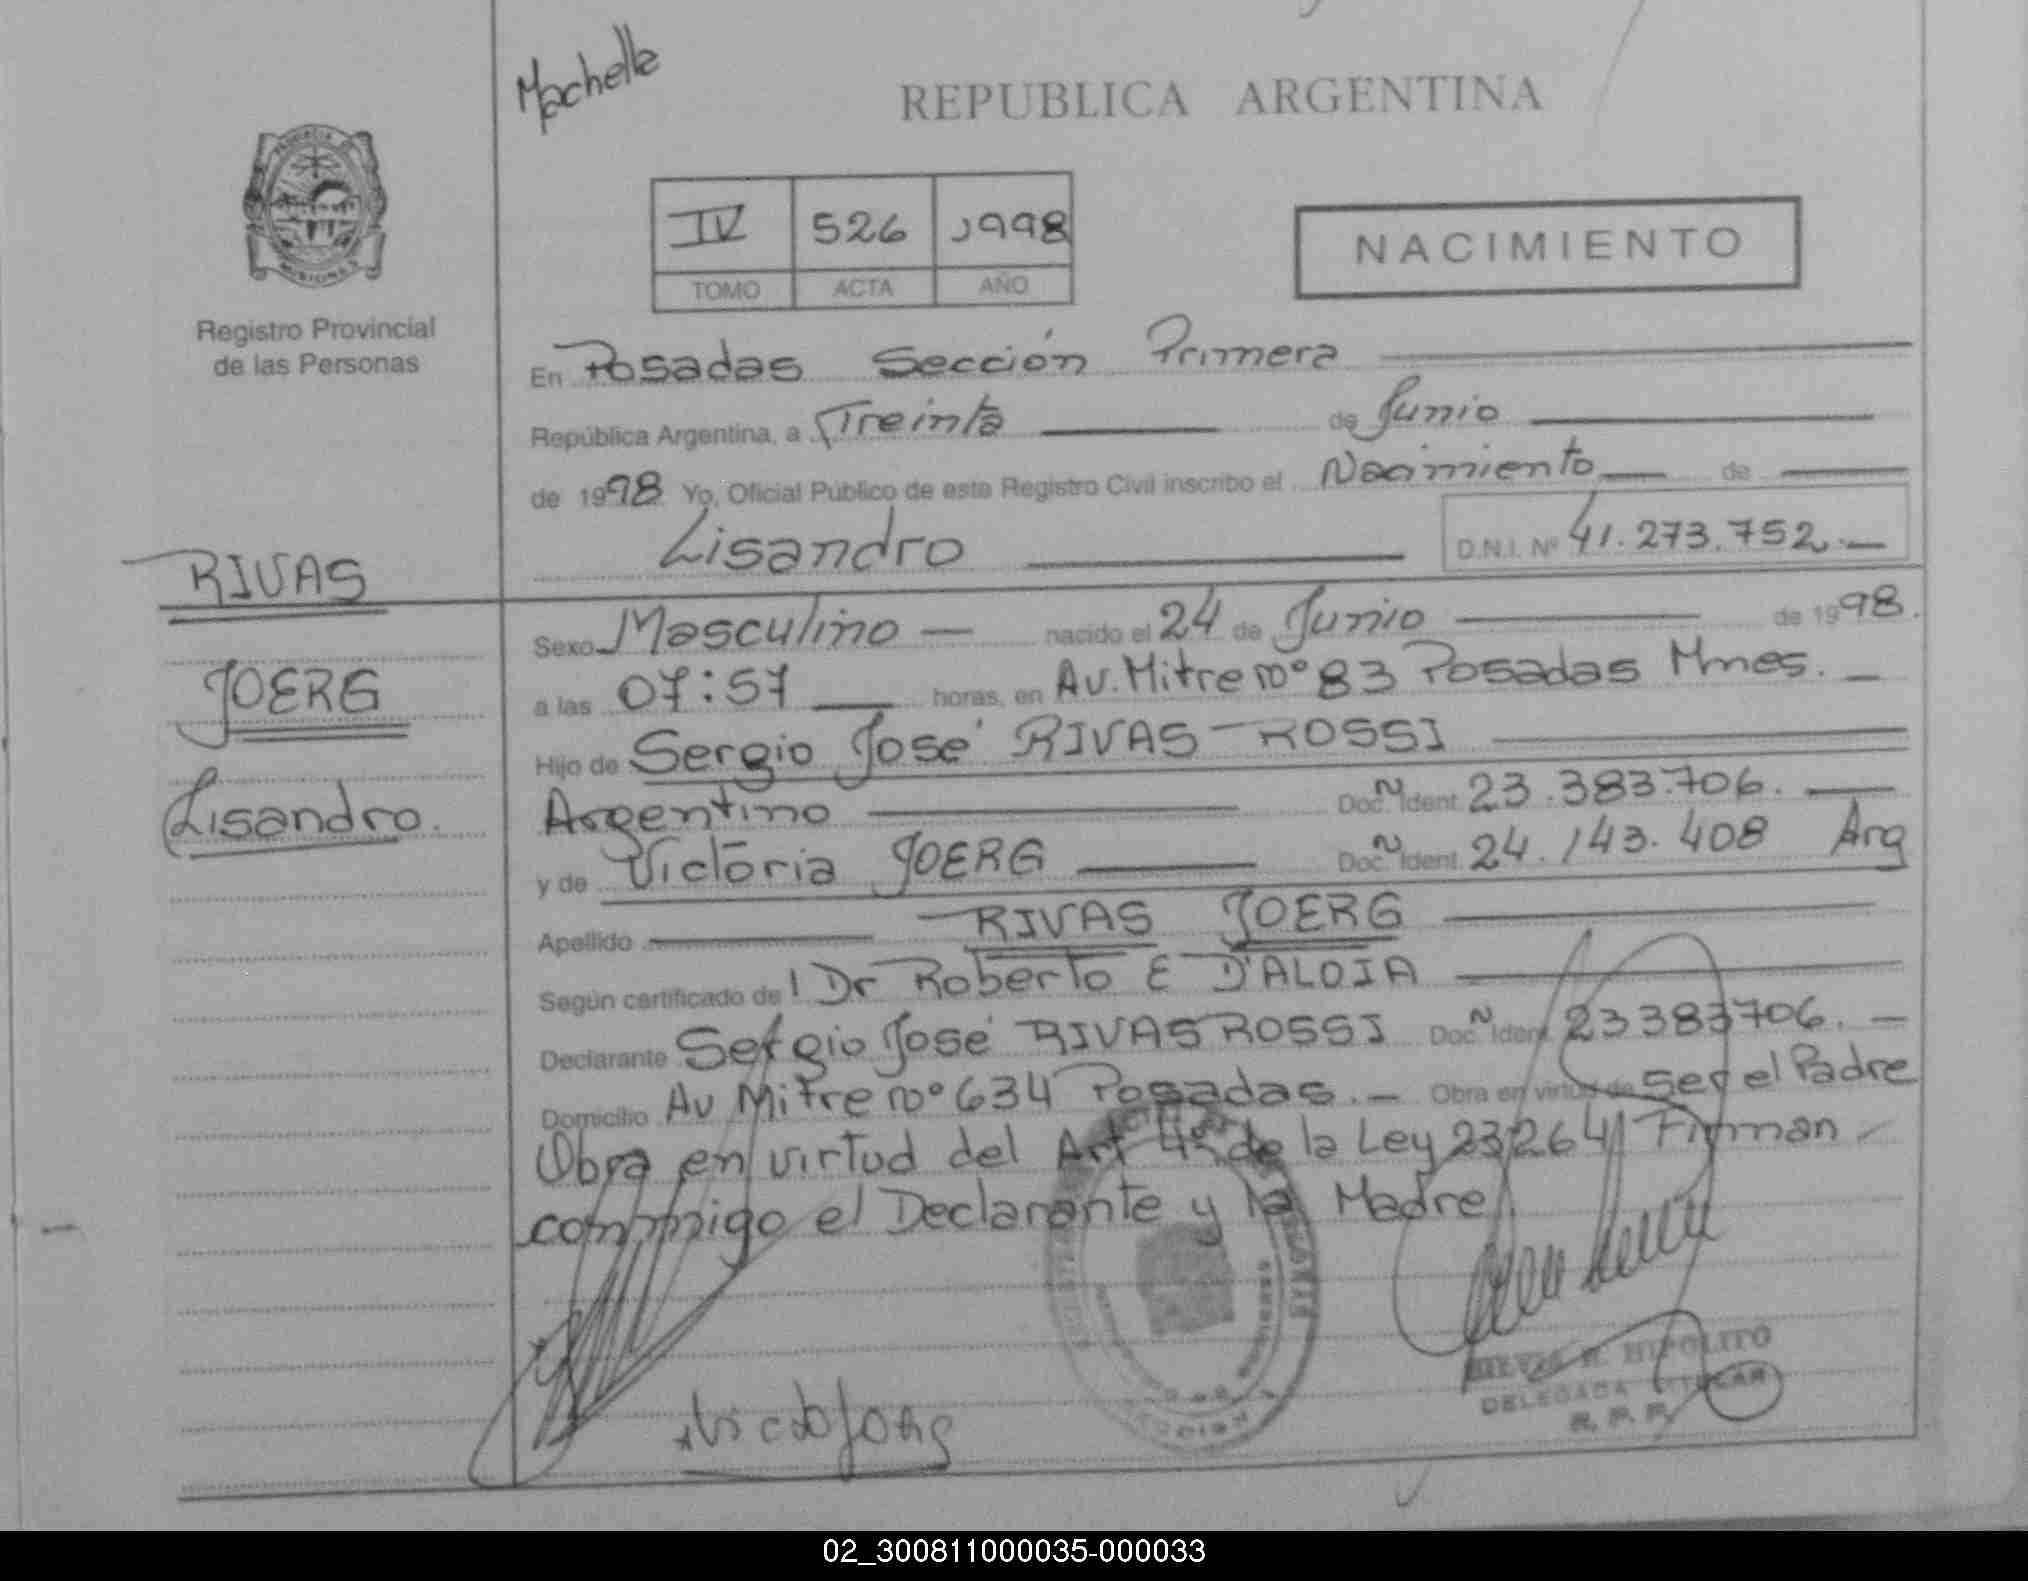 Machella
REPUBLICA ARGENTINA
PROVINCIA
MISIONES
Registro Provincial
de las Personas
IV 526 1998
TOMO ACTA AÑO
NACIMIENTO
En Posadas Sección Primera
República Argentina, a Treinta de Junio
de 1998 Yo, Oficial Público de este Registro Civil inscribo el Nacimiento de
Lisandro D.N.I. Nº 41.273.752.
RIVAS
JOERG
Lisandro.
Sexo Masculino nacido el 24 de Junio de 1998.
a las 07:57 horas, en Av. Mitre nº 83 Posadas Mnes.
Hijo de Sergio José RIVAS ROSSI
Argentino Doc. Ident. 23.383.706.
y de Victoria JOERG Doc. Ident. 24.143.408 Arg
Apellido RIVAS JOERG
Según certificado de Dr Roberto E D'ALOIA
Declarante Sergio José RIVAS ROSSI Doc. Ident. 23383706.
Domicilio Av Mitre nº 634 Posadas. Obra en virtud de ser el Padre
Obra en virtud del Art 4º de la Ley 23264 Firman
conmigo el Declarante y la Madre
HIPOLITO
DELEGADA TITULAR
R. P. P.
02_300811000035-000033